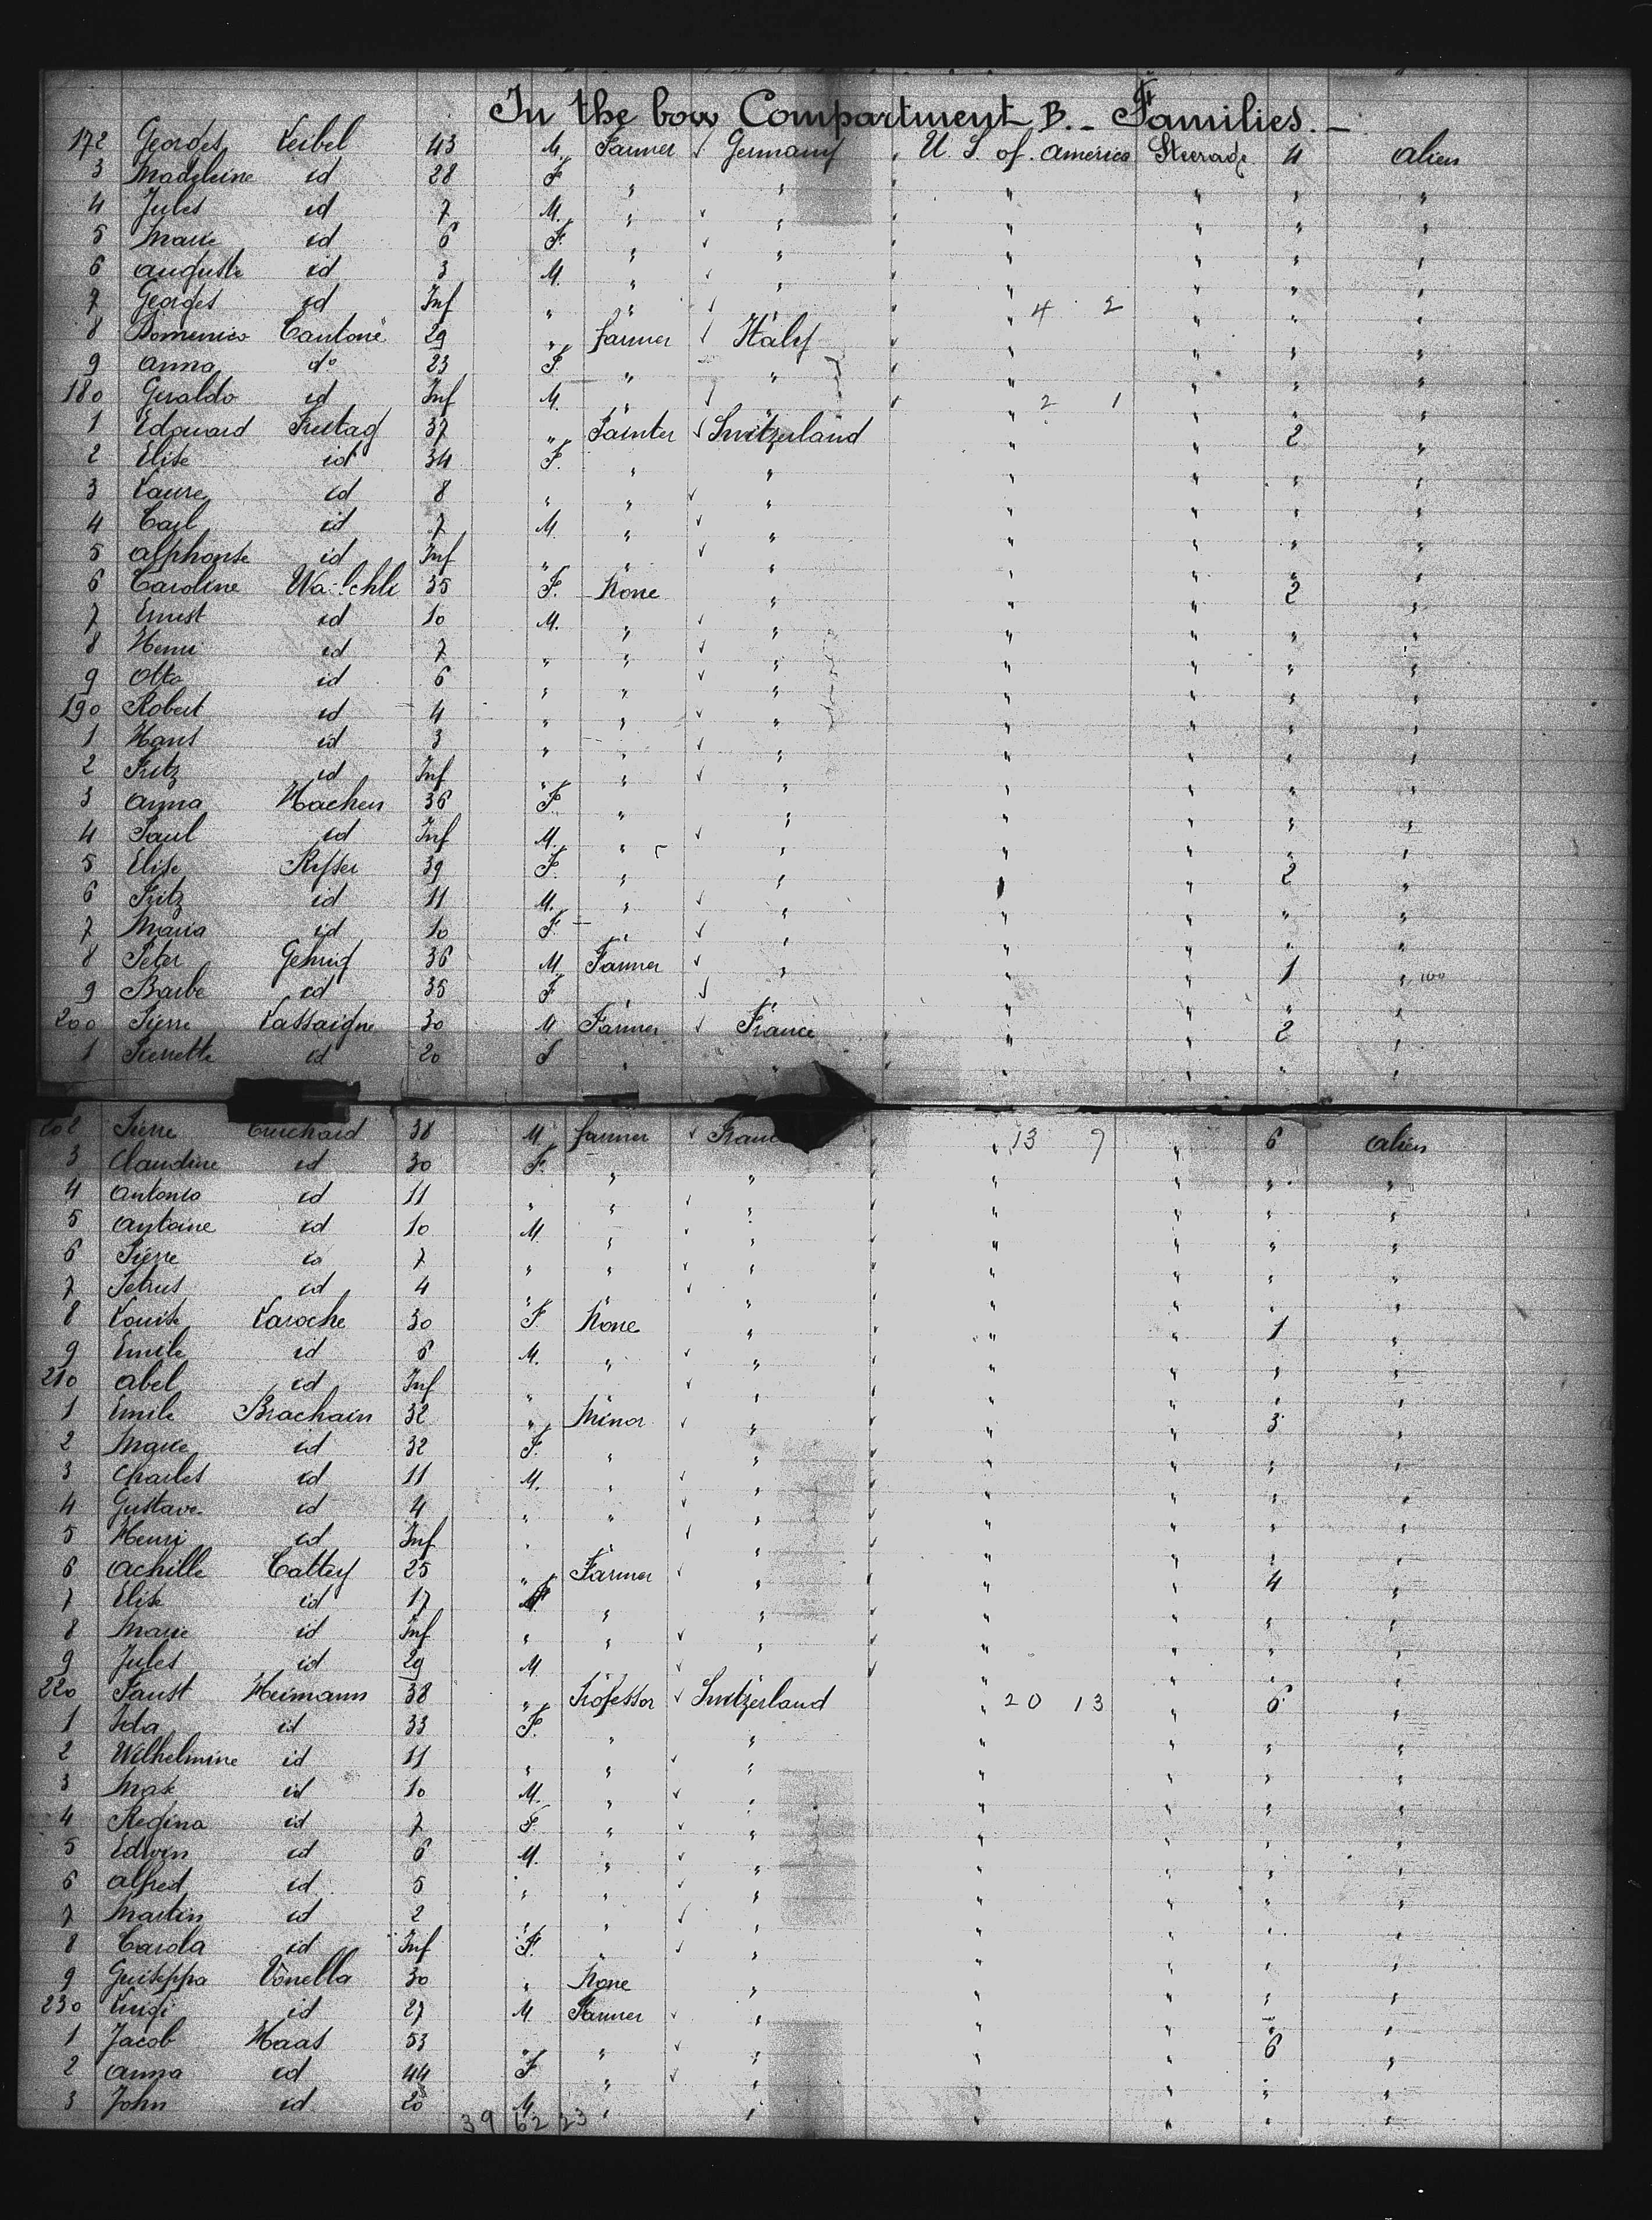 In the bow Compartment B. - Families. -
172 Georges Keibel 43 M. Farmer √ Germany U. S. of. America Steerage 4 alien
3 Madeleine id 28 F. " " " " " "
4 Jules id 7 M. " √ " " " " "
5 Marie id 6 F. " √ " " " " "
6 Auguste id 3 M. " √ " " " " "
7 Georges id Inf " " √ " " 4 2 " " "
8 Domenico Cantone 29 " farmer √ Italy " " " "
9 Anna do 23 F. " " " " " "
180 Geraldo id Inf M. " √ " " 2 1 " " "
1 Edouard Freitag 37 " Painter √ Switzerland " " 2 "
2 Elise id 34 F. " " " " " "
3 Laure id 8 " " √ " " " " "
4 Carl id 7 M. " √ " " " " "
5 Alphonse id Inf " " √ " " " " "
6 Caroline 35 F. None " " " 2 "
7 Ernest id 10 M. " √ " " " " "
8 Henri id 7 " " √ " " " " "
9 Otto id 6 " " √ " " " " "
190 Robert id 4 " " √ " " " " "
1 Hans id 3 " " √ " " " " "
2 Fritz id Inf " " √ " " " " "
3 Anna Hachen 36 F. " " " " " "
4 Paul id Inf M. " √ " " " " "
5 Elise 39 F. " " " " 2 "
6 Fritz id 11 M. " √ " " " " "
7 Maria id 10 F. " √ " " " " "
8 Peter Gehrig 36 M. Farmer √ " " " 1 " 100
9 Barbe id 35 F. " √ " " " " "
200 Pierre Lassaigne 30 M Farmer √ France " " 2 "
1 Pierrette id 20 F " " " " " "
202 Pierre 38 M. farmer √ France " 13 9 " 6 alien
3 Claudine id 30 F. " " " " " "
4 Antonio id 11 " " √ " " " " "
5 Antoine id 10 M. " √ " " " " "
6 Pierre id 7 " " √ " " " " "
7 Petrus id 4 " " √ " " " " "
8 Louise Laroche 30 F None " " " 1 "
9 Emile id 6 M. " √ " " " " "
210 Abel id Inf " " √ " " " " "
1 Emile Brachain 32 " Minor √ " " " 3 "
2 Marie id 32 F. " " " " " "
3 Charles id 11 M. " √ " " " " "
4 Gustave id 4 " " √ " " " " "
5 Henri id Inf " " √ " " " " "
6 Achille Cattey 25 " Farmer √ " " " 4 "
7 Elise id 17 F " " " " " "
8 Marie id Inf " " √ " " " " "
9 Jules id 29 M " √ " " " " "
220 Faust Heimann 38 " Professor √ Switzerland 20 13 " 6 "
1 Ida id 33 F. " " " " " "
2 Wilhelmine id 11 " " √ " " " " "
3 Max id 10 M. " √ " " " " "
4 Regina id 7 F " √ " " " " "
5 Edwin id 6 M. " √ " " " " "
6 Alfred id 5 " " √ " " " " "
7 Martin id 2 " " √ " " " " "
8 Carola id Inf F. " √ " " " " "
9 Guiseppa Vonella 30 " None " " " " "
230 Luigi id 27 M Farmer √ " " " " "
1 Jacob Haas 53 " " √ " " " 6 "
2 Anna id 44 F " √ " " " " "
3 John id 20 M. " " " " " "
39 62 23